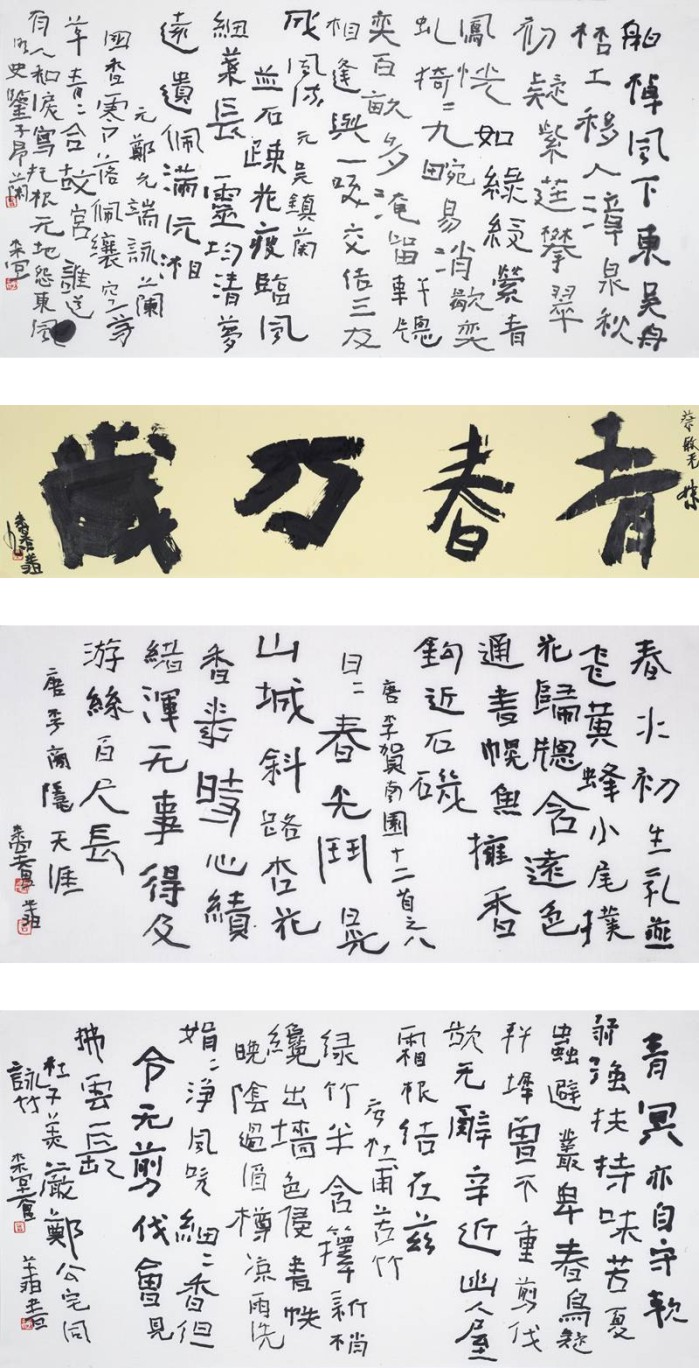 舶棹风下東吴舟
工移入漳泉秋
初疑紫莛攀翠
鳳恍如綠綬縈青
虬猗二九畹易消歇奕
奕百畝多淹留軒窗
相逢與一咲交结三友
成風流 元吴鎮蘭
並石疎花瘦臨風
細葉長靈均清夢
遠遺佩滿沅湘
元鄭元端詠蘭
國香零落佩纕空芳
草青二合故宫誰道
有人和淚寫托根无地怨東風
明史鑒子昂蘭
青春万歲
春水初生乳燕
飞黄蜂小尾撲
花歸窗含遠色
通書幌魚擁香
鈎近石磯
唐李賀南園十二首之八
日二春光鬥日光
山城斜路杏花
香幾時心績
緒渾无事得及
游絲百尺長
唐李商隱天涯
青冥亦自守軟
弱強扶持味苦夏
蟲避叢卑春鳥疑
軒墀曾不重剪伐
欲无辭幸近幽人屋
霜根结在兹
唐杜甫苦竹
绿竹半含籜新梢
纔出墙色侵書帙
晚陰過酒樽凉雨洗
娟二淨風吹細二香但
令无剪伐會見
拂雲長
杜子美嚴鄭公宅同
詠竹